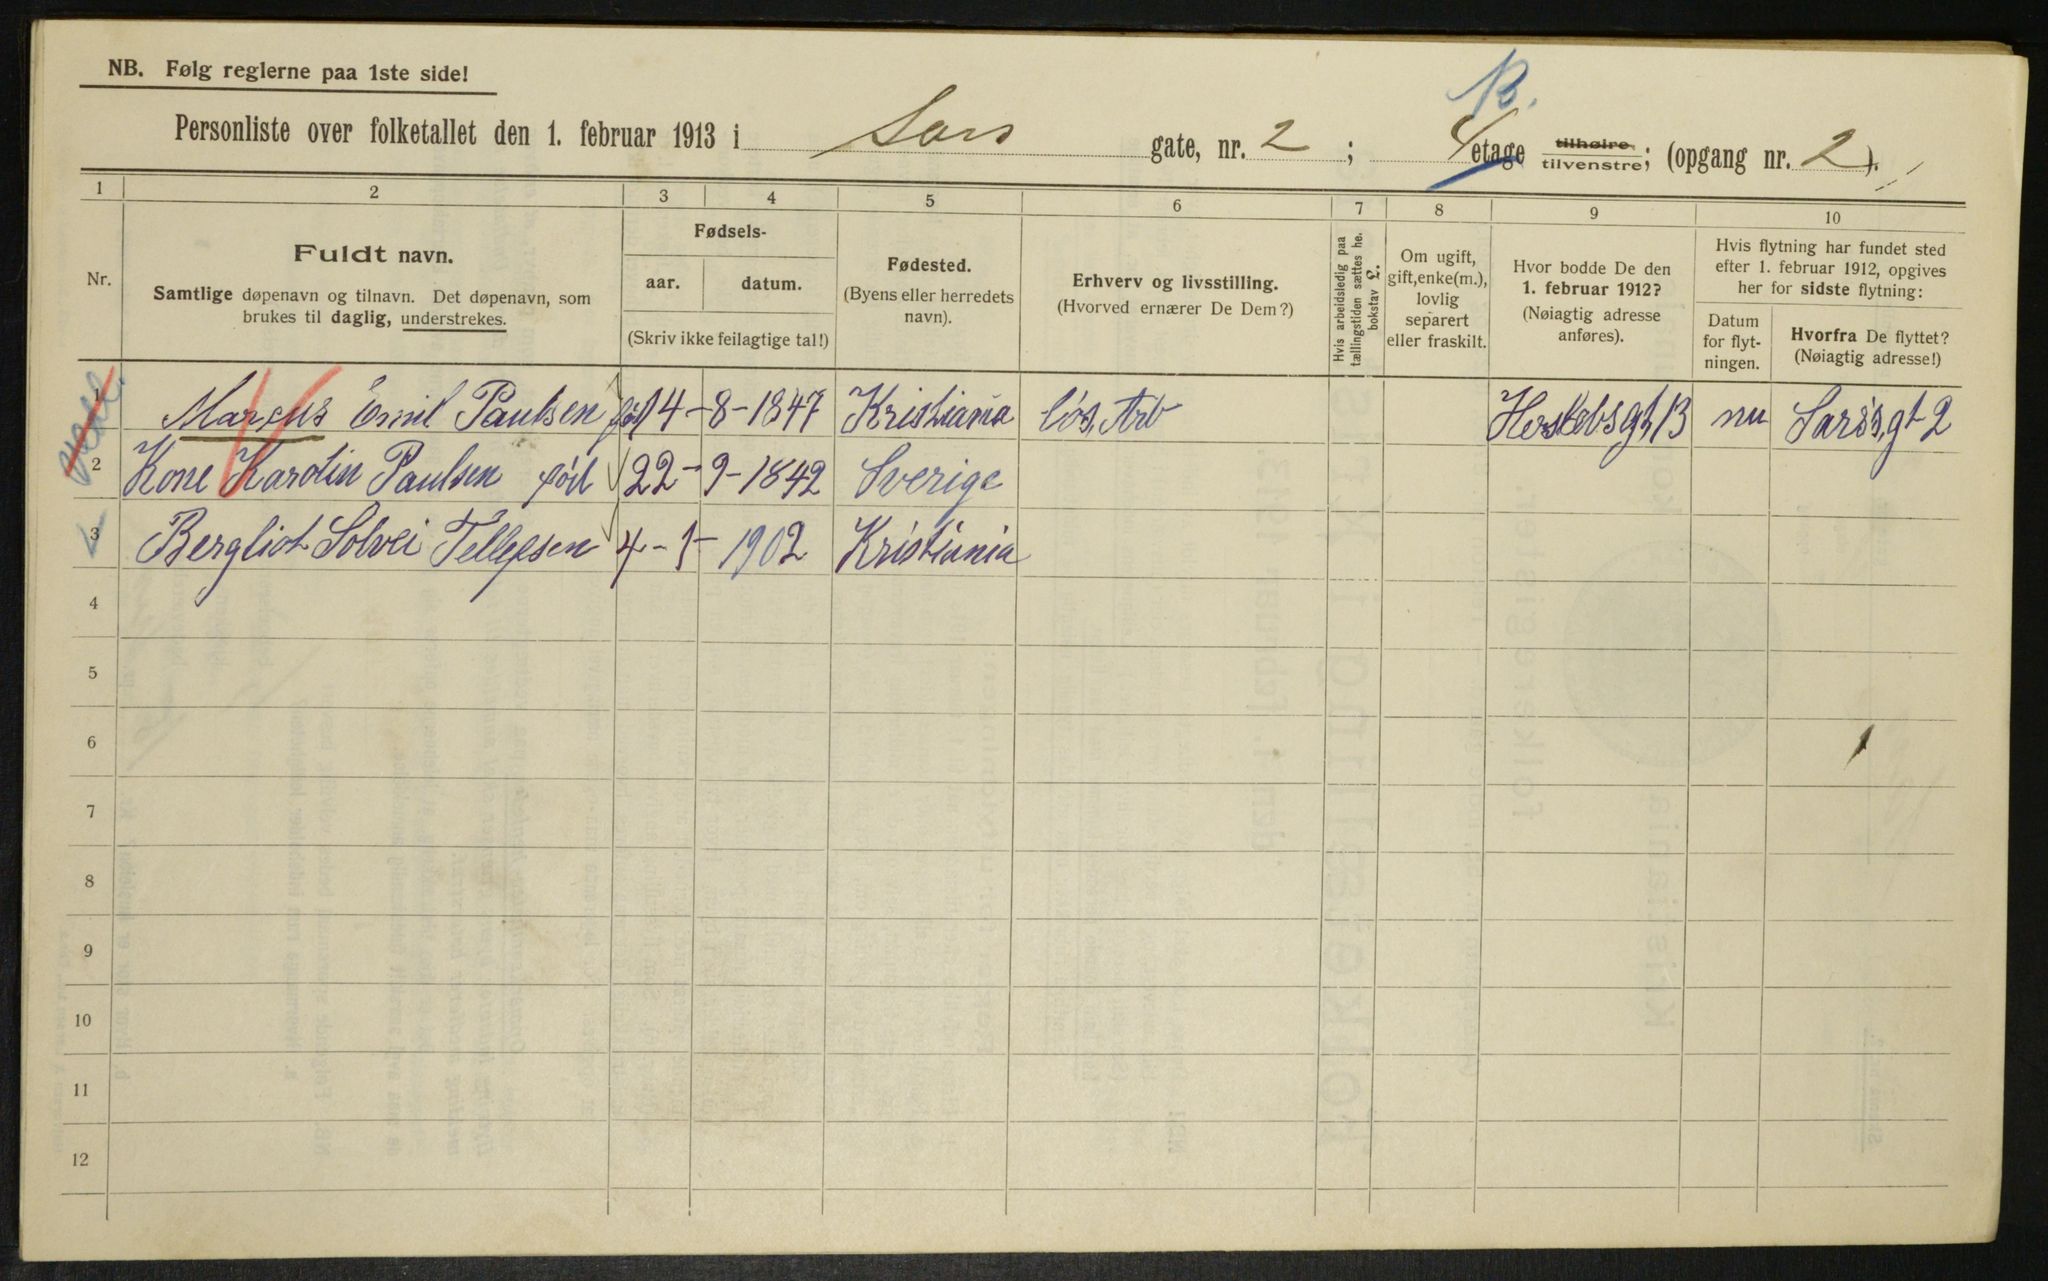 NB. Følg reglerne paa 1ste side!
B.
Personliste over folketallet den 1. februar 1913 i Sars gate, nr. 2 ; 4 etage tilhøire tilvenstre; (opgang nr. 2 ).
1 2 3 4 5 6 7 8 9 10
Nr.
Fuldt navn.
Samtlige døpenavn og tilnavn. Det døpenavn, som
brukes til daglig, understrekes.
Fødsels-
aar. datum.
(Skriv ikke feilagtige tal!)
Fødested.
(Byens eller herredets
navn).
Erhverv og livsstilling.
(Hvorved ernærer De Dem?)
Hvis arbeidsledig paa
tællingstiden sættes he.
bokstav L.
Om ugift,
gift, enke(m.),
lovlig
separert
eller fraskilt.
Hvor bodde De den
1. februar 1912?
(Nøiagtig adresse
anføres).
Hvis flytning har fundet sted
efter 1. februar 1912, opgives
her for sidste flytning:
Datum
for flyt-
ningen.
Hvorfra De flyttet?
(Nøiagtig adresse!)
1 Marcus Emil Paulsen fød 14-8-1847 Kristiania løs. Arb Herslebsgt, 13 nu Sarsgt 2
2 Kone Karolin Paulsen född 22-9-1842 Sverige
3 Bergliot Solvei Tellefsen 4-1-1902 Kristiania
4
5
6
7
8
9
10
11
12